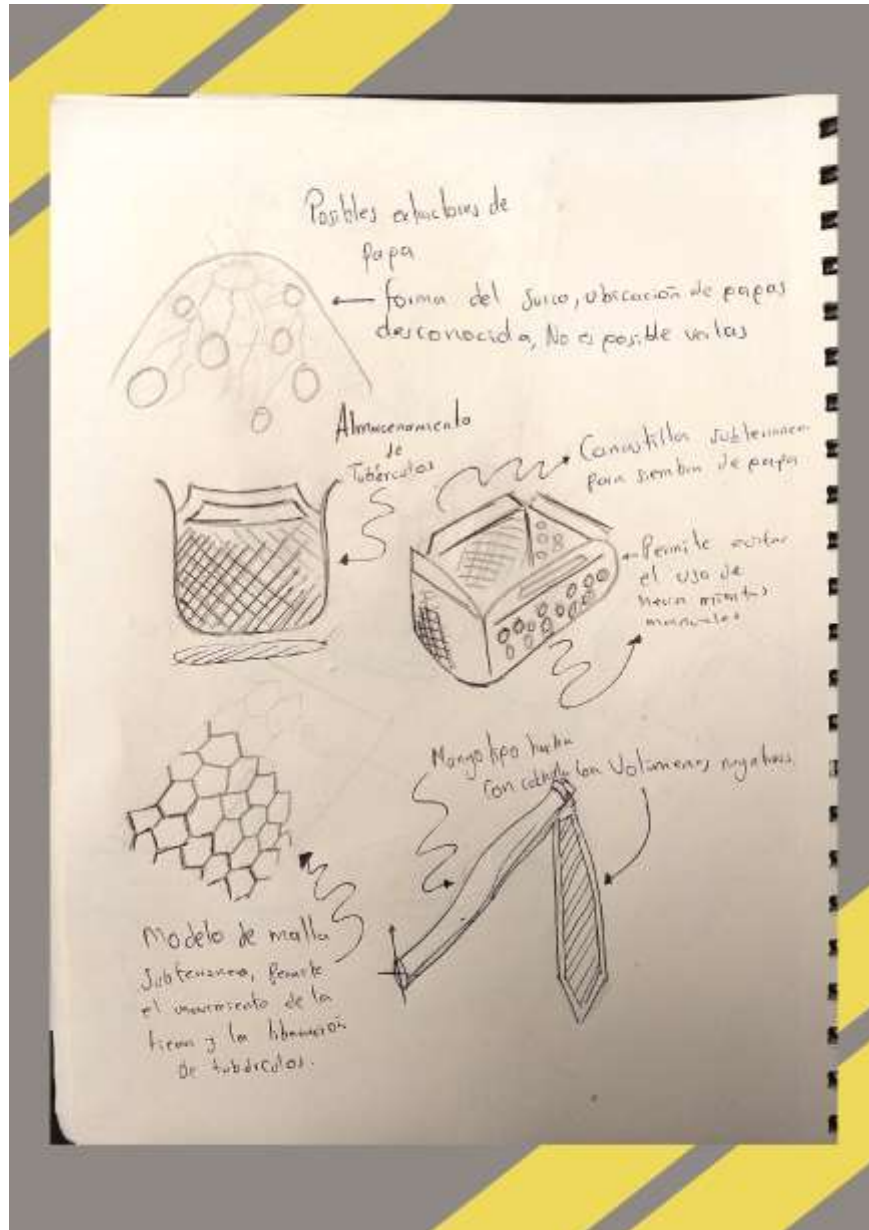 Posibles extractores de
papa
forma del surco, ubicación de papas
desconocida, No es posible verlas
Almacenamiento
de
Tubérculos
Canastilla subterranea
para siembra de papa
Permite evitar
el uso de
herramientas
manuales
Mango tipo hacha
con Volumenes negativos
Modelo de malla
subterranea, permite
el movimiento de la
tierra y la liberación
de tubérculos.